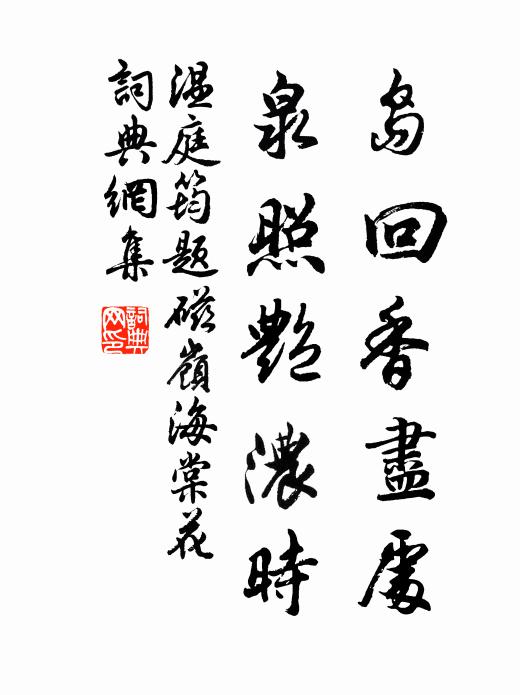 島回香盡處
泉照艷濃時
温庭筠題磁嶺海棠花
詞典網集
詞典网印